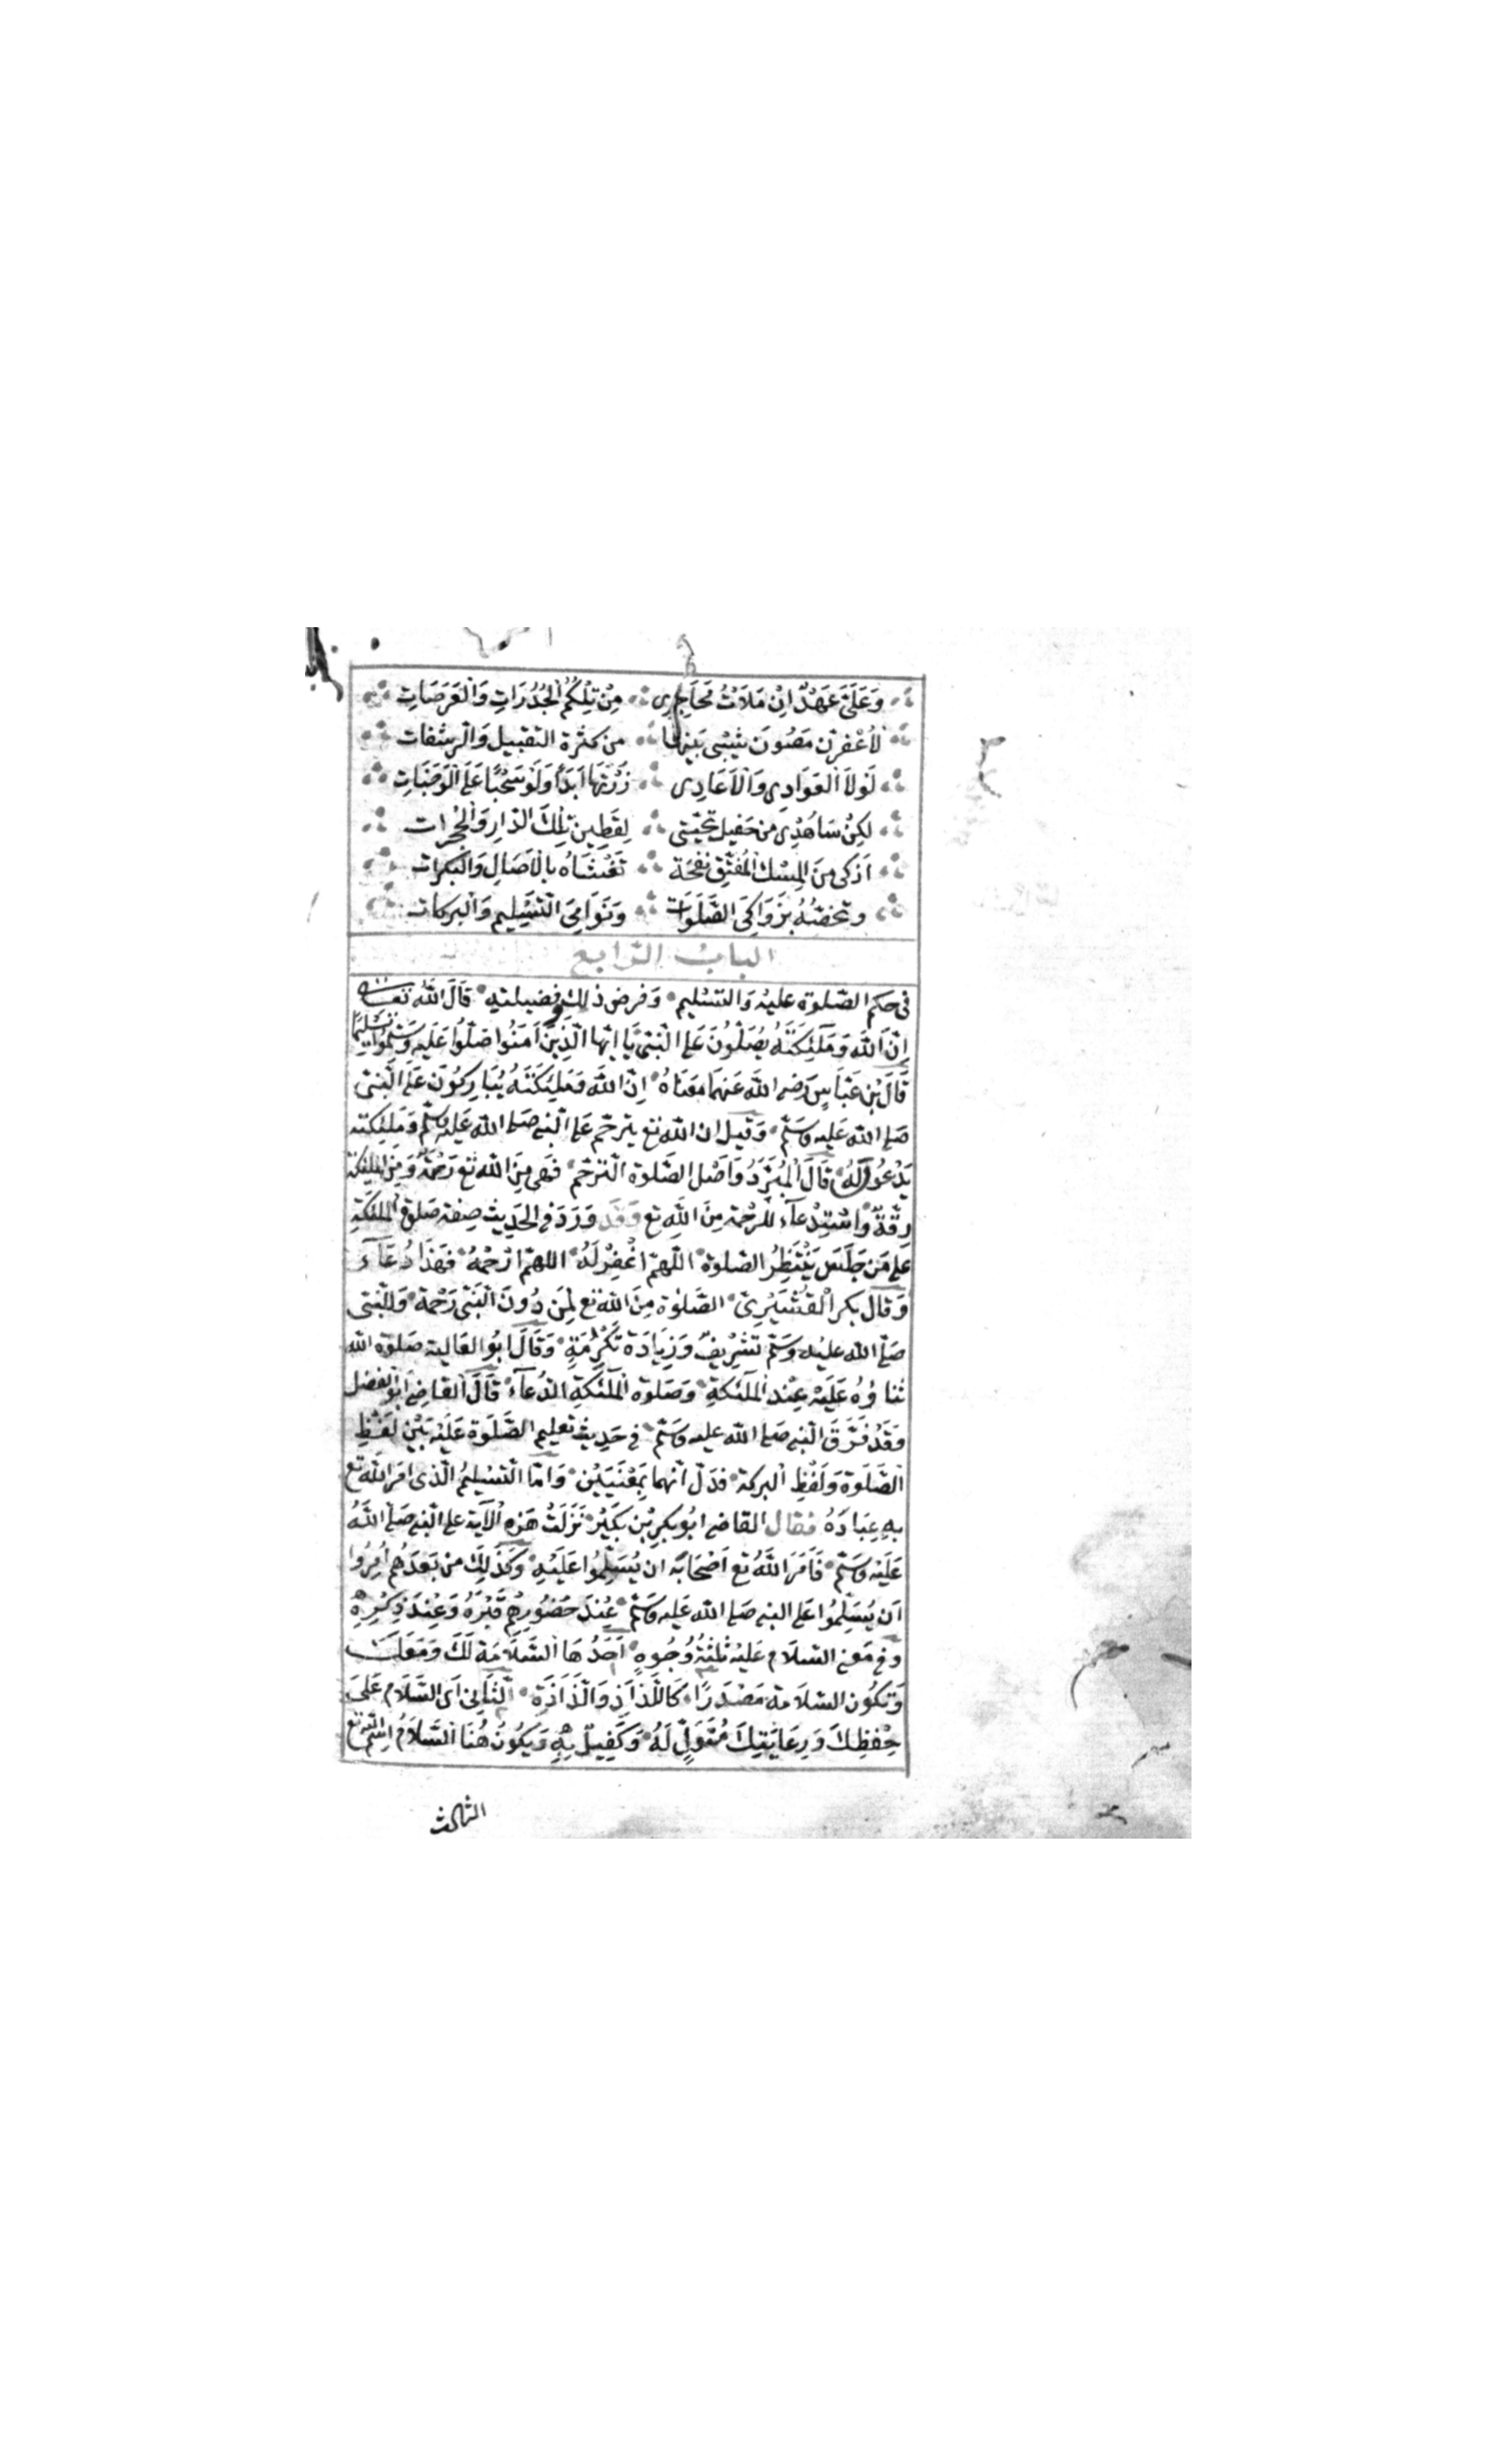 وَعَلَيَّ عَهْدٌ اِنْ مَلَأْتُ مَحَاجِرِى مِنْ تِلْكُمُ الْجُدُرَاتِ وَالْعَرَصَاتِ
لَاُعَفِّرَنْ مَصُونَ شَيْبِى بَيْنَهَا من كثرة التقبيل والرشفات
لَوْلَا الْعَوَادِى وَالْاَعَادِى زُرْتُهَا اَبَدًا وَلَوْ سَحْبًا عَلَى الْوَجَنَاتِ
لكِنْ سَاُهْدِى مِنْ حَفِيلِ تَحِيَّتِى لِقَطِينِ تِلْكَ الدَّارِ وَالْحُجُرَات
اَذْكَى مِنَ الْمِسْكِ الْمُفَتَّقِ نَفْحَةً تَغْشَاهُ بِالْاَصَالِ وَالْبُكُرَاتِ
وتخصّهُ بِزَوَاكِىَ الصَّلَوَاتِ وَنَوَامِىَ التَّسْلِيمِ وَالْبَرَكَاتِ
الباب الرابع
فى حكم الصّلوة عليه وَالتسْليم وَفرض ذلك وفضيلتِهِ قَالَ اللّه تعالى
اِنَّ اللّهَ وَمَلَئِكَتَهُ يُصَلُّونَ عَلَى النَّبِىِّ يَا اَيُّهَا الَّذِينَ اَمَنُوا صَلُّوا عَلَيْهِ وَسَلِّمُوا تَسْلِيمًا
قَالَ بْنُ عَبَّاسٍ رَضى اللّه عَنهمَا مَعَناهُ اِنّ اللّهَ وَمَلَئِكَتَهُ يُبَارِكُونَ عَلَى النَّبِىّ
صَلى اللّه عَليه وَسَلّم وَقيل ان اللّه تع يترحّم عَلى النّبى صَلى اللّه عَليه وسلّم وَمَلئكته
يَدْعُونَ لَهُ قَالَ الْمُبَرّدُ وَاَصْل الصَّلوة التّرحّم فَهى مِنَ اللّه تع رَحْمَةٌ وَمِنَ الملئكة
رِقَّةٌ وَاسْتِدْعَاءٌ للرّحْمَة مِنَ اللّهِ تع وَقَد وَرَدَ فى الحَدِيث صِفة صَلوة الملئكة
عَلى مَن جَلَسَ يَنْتَظِرُ الصّلوة اَللّهمّ اغْفِرْ لَهُ اللّهمّ ارْحَمْهُ فَهَذَا دُعَآء
وَقال بكر القُشَيْرِىّ الصَّلوة مِنَ اللّه تع لِمَن دُونَ النّبىّ رَحْمَة وَللنّبىّ
صَلّى اللّه عليه وَسَلّم تشرِيفٌ وَزِيَادَة تَكْرُمَةٍ وَقَالَ ابُو العَالية صَلوة اللّه
ثناؤهُ عَلَيْهِ عِنْدَ الْمَلَئكَةِ وَصَلوة الْمَلَئكَةِ الدُعَآءُ قَالَ القاضِى اَبُو الفضل
وَقَدْ فَرَّقَ النّبى صَلى اللّه عليه وَسَلّم فى حَدِيث تعليم الصَّلَوة عَلَيْهِ بَيْنَ لَفْظِ
الصَّلَوة وَلَفْظِ الْبركة فدَلّ اَنّهما بِمَعْنَيَيْن وَامّا التّسْلِيمُ الّذى امَر اللّه تع
بِهِ عِبَادَهُ فقال القاضى ابُو بكرِ بْن بكَيْر نَزَلَتْ هَذِهِ الْآيَة على النّبى صَلى اللّهُ
عَلَيْه وَسَلّم فَاَمَرَ اللّهُ تع اَصْحَابَه اَنْ يُسَلِّمُوا عَلَيْهِ وَكَذَلِكَ من بَعْدَهُم اُمِرُوا
اَن يُسَلِّمُوا عَلى النبى صَلى اللّه عَليه وَسَلّم عِنْدَ حَضُورِهِم قَبْرَهُ وَعِنْدَ ذِكْرِهِ
وَفى مَعنى السّلام عَليْهِ ثلثةُ وُجُوهٍ اَحَدُهَا السَّلَامَة لَكَ وَمَعَكَ
وَتكُون السّلامَة مَصْدَرًا كَاللّذَاذِ وَالّذَاذَةِ الثَّانِى اَى السَّلَام عَلى
حِفْظِكَ وَرِعَايَتِكَ مُتَوَلٍّ لَهُ وَكَفِيلٌ بِهِ وَيَكُونُ هُنَا السَّلَامُ اِسْمُ اللّه تع
الثالث